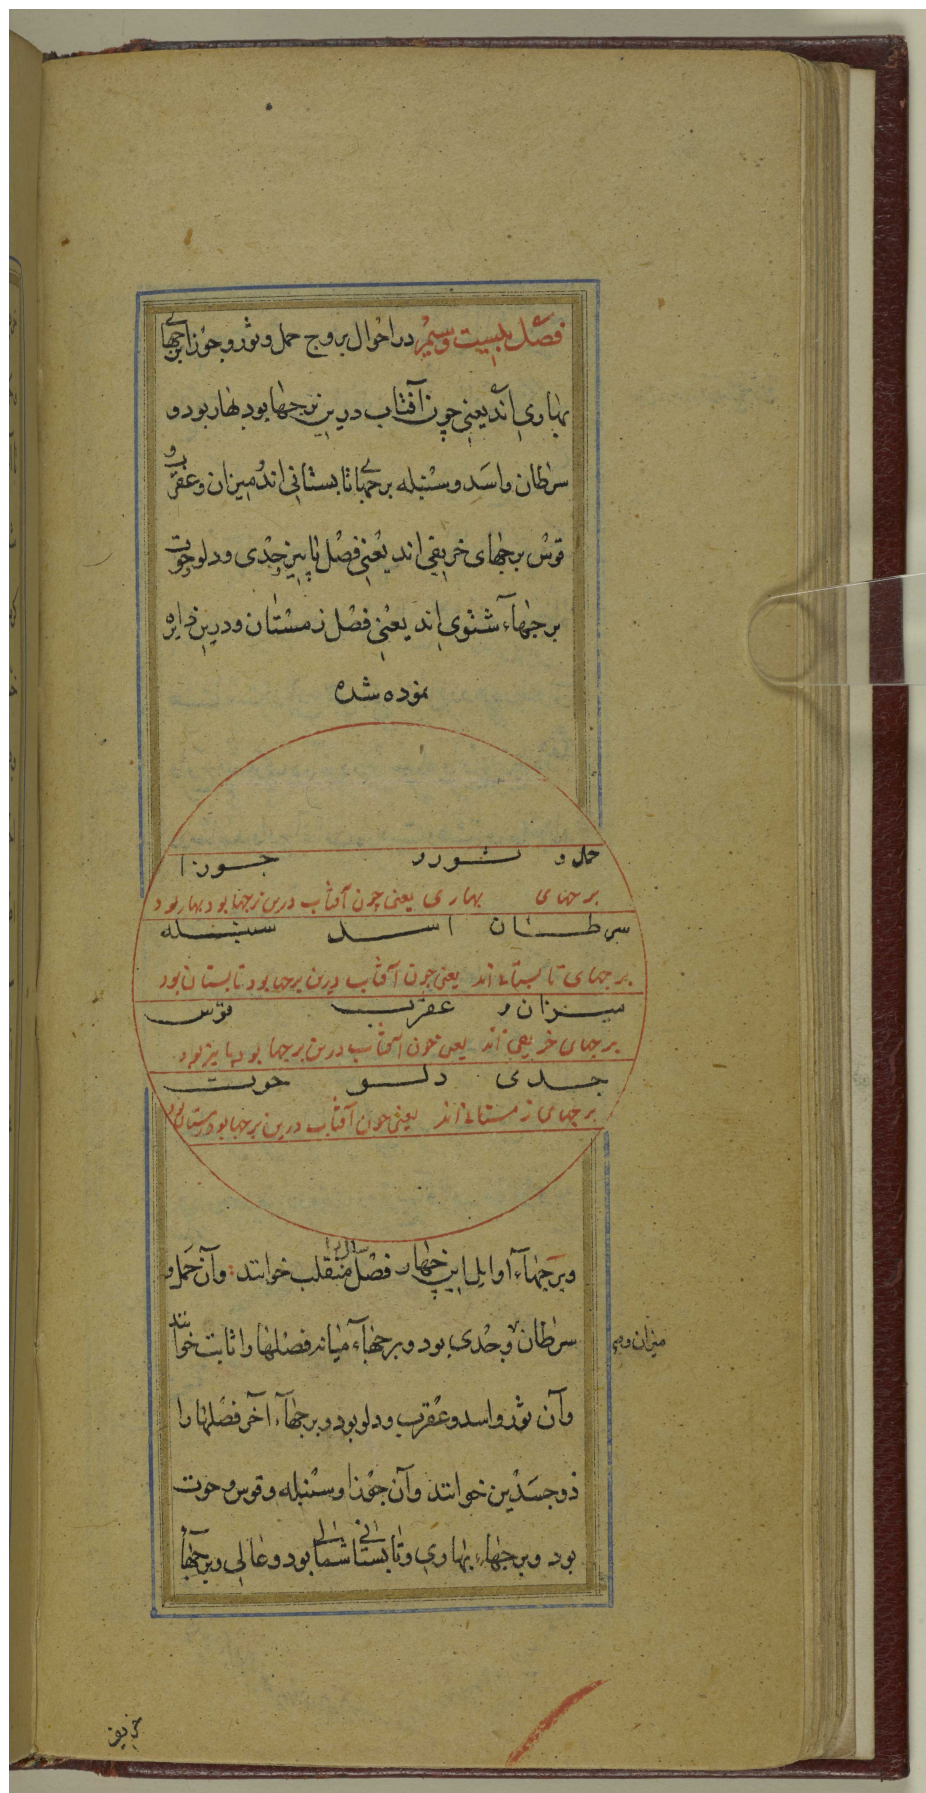 فصل بیست وسیم در احوال بروج حمل وثور وجوزا برجهای
بهاری اند یعنی چون آفتاب درین برجها بود بهار بود و
سرطان واسد وسنبله برجهای تابستانی اند ومیزان وعقرب و
قوس برجهای خریفی اند یعنی فصل پاییز وجدی ودلو وحوت
برجهاء شتوی اند یعنی فصل زمستان ودرین دایره
نموده شده
حمل و ثور و جوزا
برجهای بهاری یعنی چون آفتاب درین برجها بود بهار بود
سرطان اسد سنبله
برجهای تابستانی اند یعنی چون آفتاب درین برجها بود تابستان بود
میزان و عقرب قوس
برجهای خریفی اند یعنی چون آفتاب درین برجها بود پاییز بود
جدی دلو حوت
برجهای زمستانی اند یعنی چون آفتاب درین برجها بود زمستان بود
وبرجهاء اوایل این چهار فصل سال را منقلب خوانند وآن حمل و
سرطان وجدی بود وبرجهاء میانه فصلها را ثابت خوانند
میزان و
وآن ثور واسد وعقرب ودلو بود وبرجهاء آخر فصلها را
ذوجسدین خوانند وآن جوزا وسنبله وقوس وحوت
بود وبرجهاء بهاری وتابستانی شمالی بود وعالی وبرجهاء
خریفی